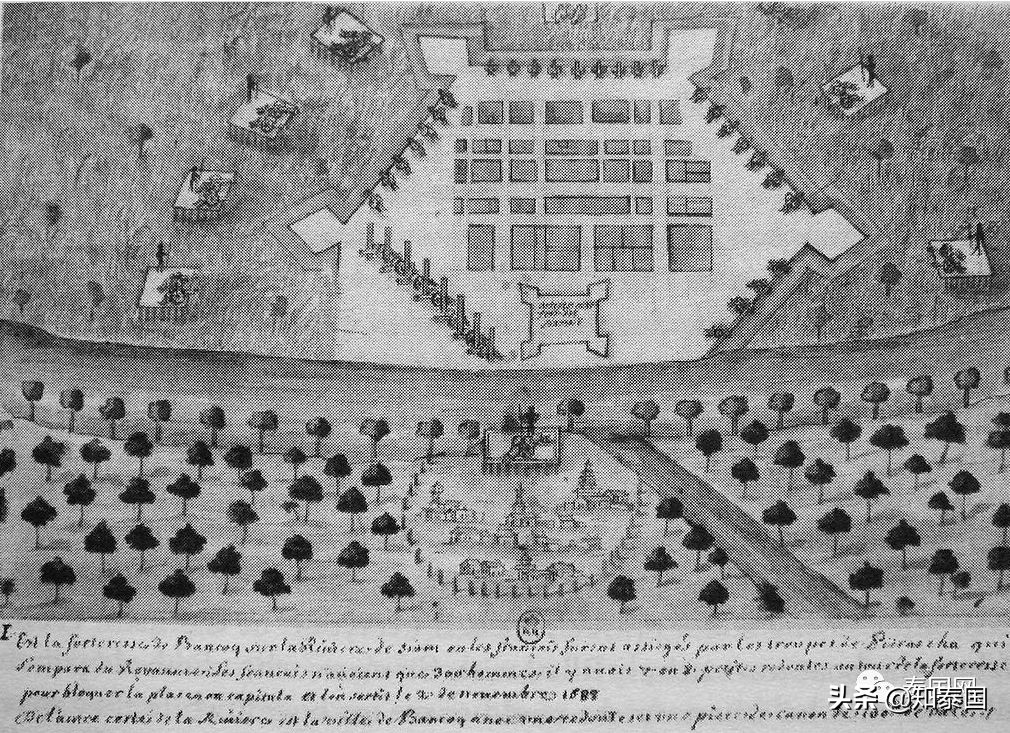 I. Est la forteresse de Bancoq sur la Riviere de siam ou les françois furent assiegés par les troupes de Pitracha qui
s'empara du Royaume les francois n'avoient que 300 hommes, il y avoit 7 ou 8 petites redoutes autour de la forteresse
pour bloquer la place on capitula et l'on sortit le 2 de novembre 1688
De l'autre costé de la Riviere est la ville de Bancoq avec une redoute piece de canon de
泰国网
头条 @知泰国